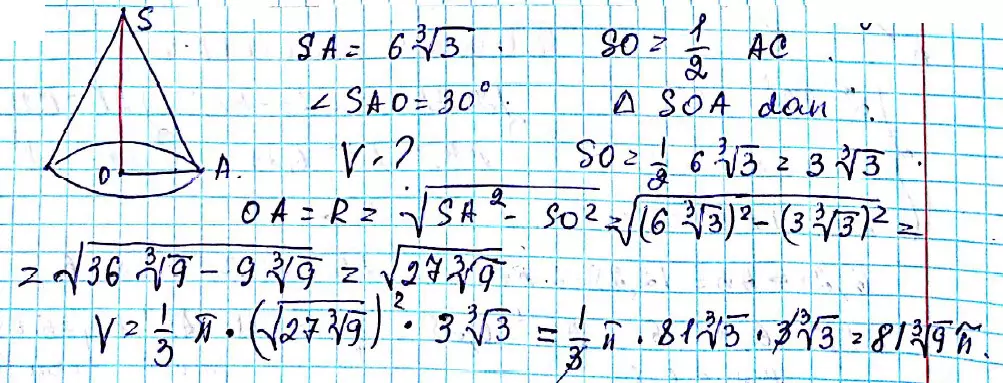 S
SA = 6∛3. SO = 1/2 AC.
∠SAO = 30°. Δ SOA dan :
O A. V - ? SO = 1/2 6∛3 = 3∛3.
OA = R = √(SA² - SO²) = √((6∛3)² - (3∛3)²) =
= √(36∛9 - 9∛9) = √(27∛9)
V = 1/3 π · (√(27∛9))² · 3∛3 = 1/3 π · 81∛3 · 3∛3 = 81∛9 π.